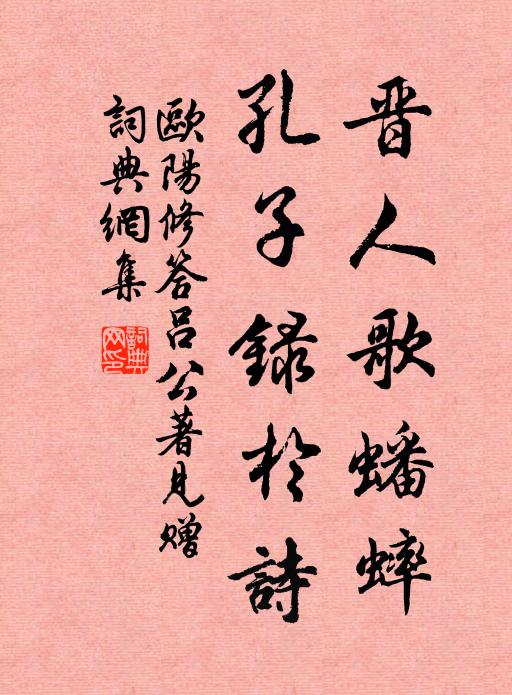 晋人歌蟠蟀
孔子録於詩
歐陽修答呂公著見贈
詞典網集
詞典網印